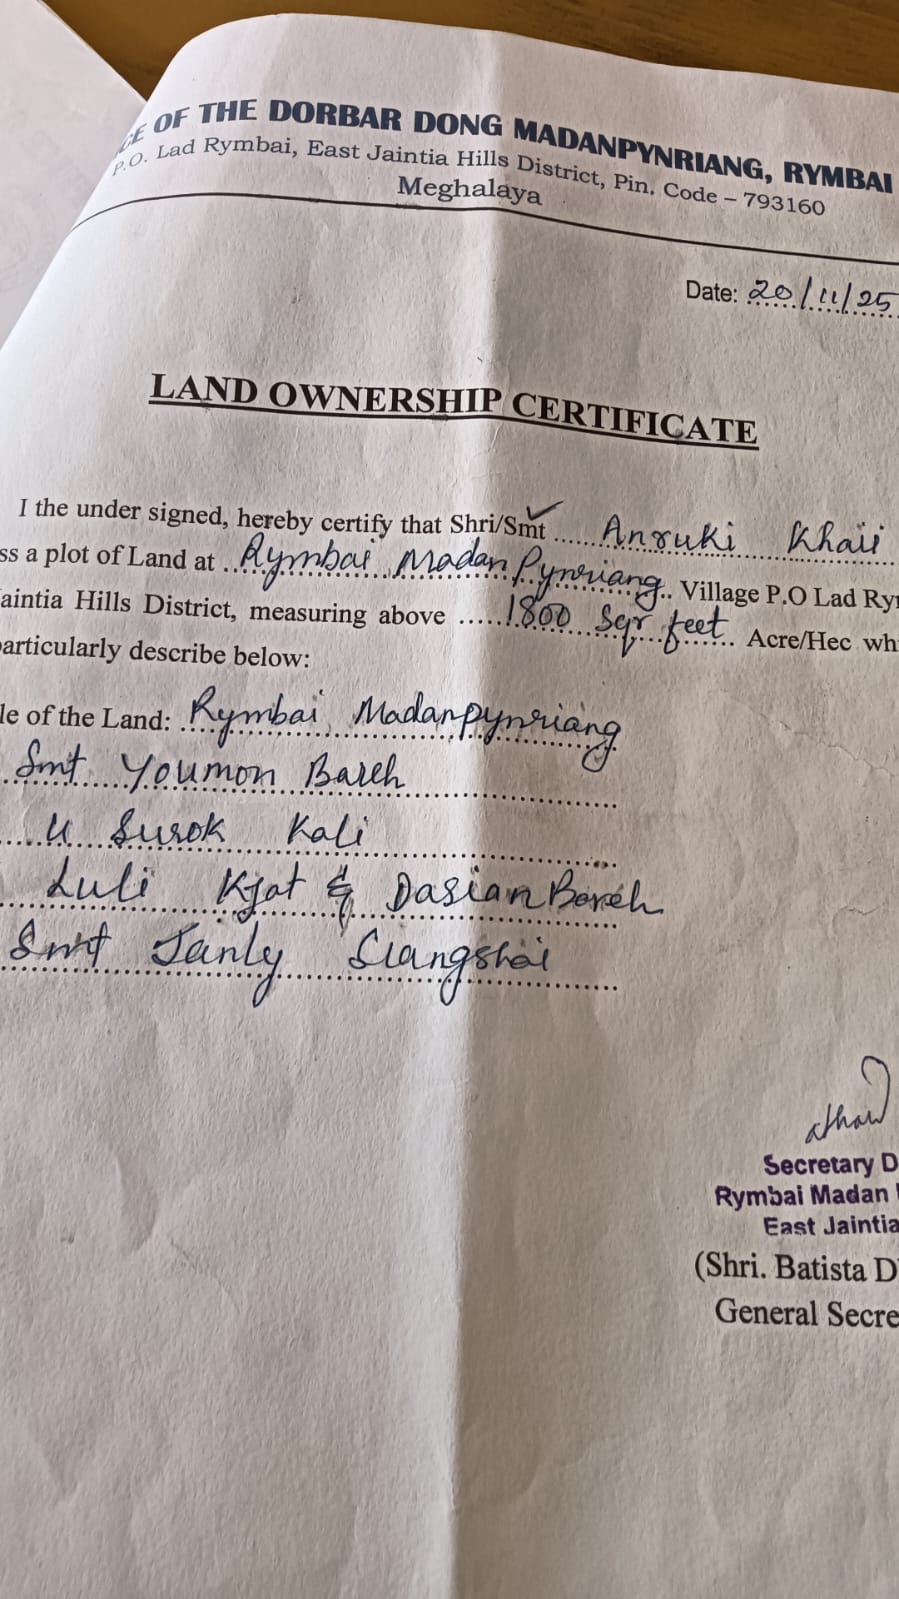 CE OF THE DORBAR DONG MADANPYNRIANG, RYMBAI
P.O. Lad Rymbai, East Jaintia Hills District, Pin. Code – 793160
Meghalaya
Date: 20/11/25
LAND OWNERSHIP CERTIFICATE
I the under signed, hereby certify that Shri/Smt ..... Anruki Khaii
ss a plot of Land at .. Rymbai Madan Pynriang .. Village P.O Lad Ry
aintia Hills District, measuring above ..... 1800 Sqr feet .. Acre/Hec wh
particularly describe below:
le of the Land: Rymbai Madanpynriang
Smt Youmon Bareh
U Surok Kali
Luli Kjat & Dasian Bareh
Smt Janly Siangshai
Secretary D
Rymbai Madan
East Jaintia
(Shri. Batista D
General Secre